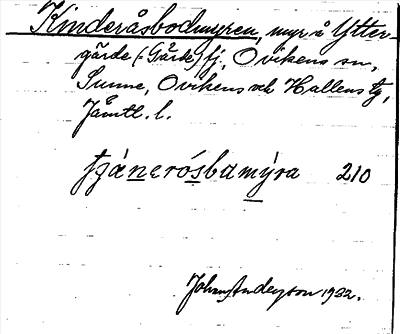 Kinderåsbodmyren, myr å Ytter-
gärde (= Gärde) fj., Ovikens sn,
Sunne, Ovikens och Hallens tg,
Jämtl. l.
tjánerósbamýra 210
Johan Anderson 1932.